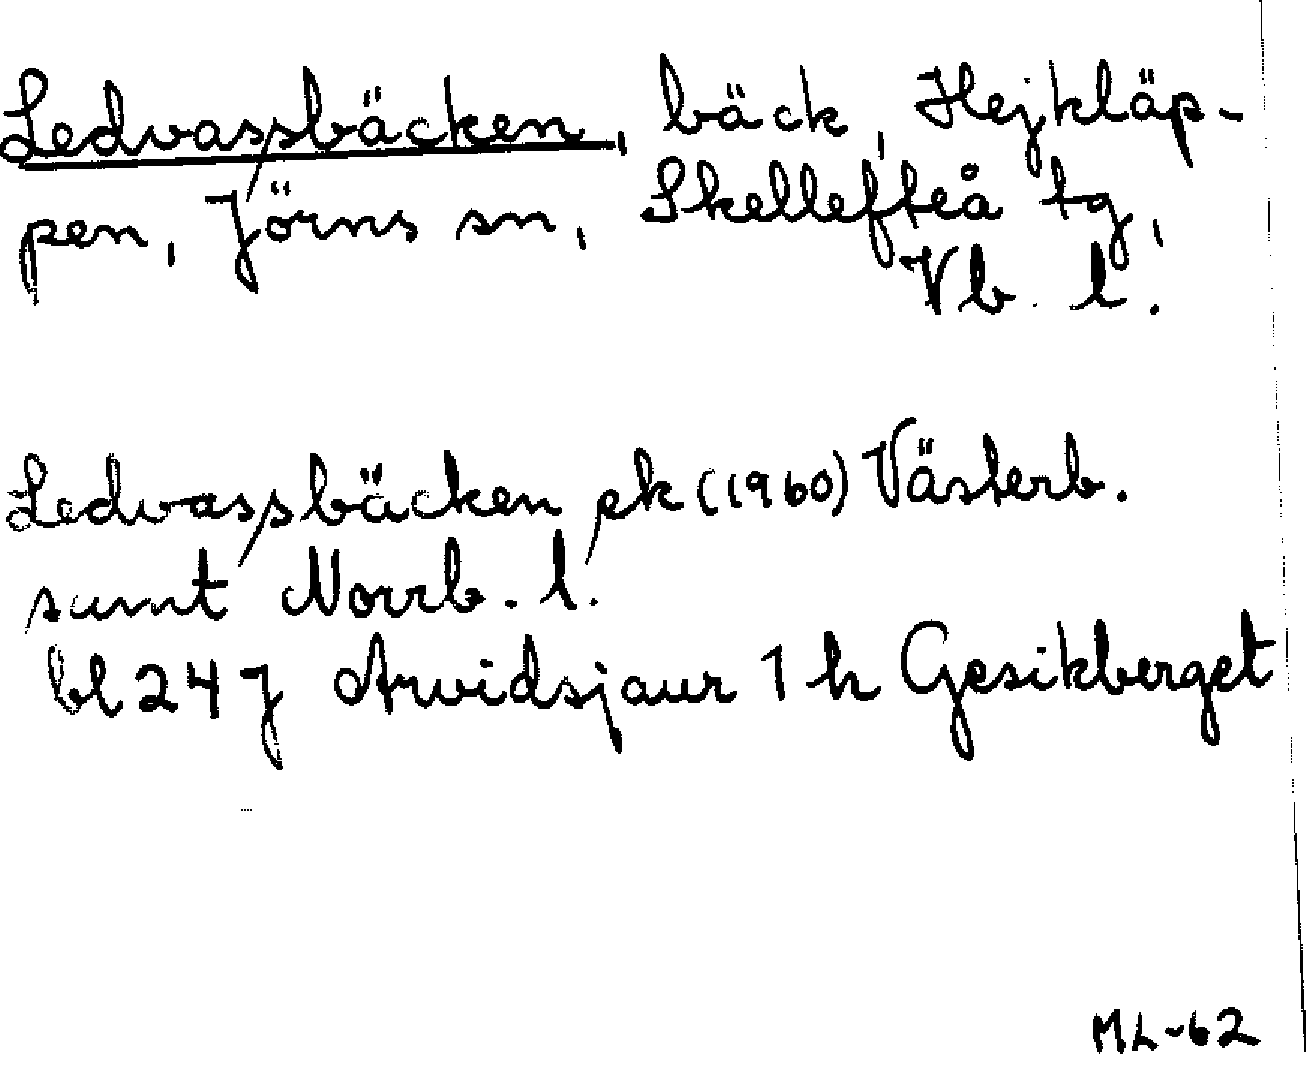 Ledvassbäcken, bäck, Hejkläp-
pen, Jörns sn, Skellefteå tg,
Vb. l.
Ledvassbäcken ek (1960) Västerb.
samt Norrb. l.
bl 24 J Arvidsjaur 1 h Gesikberget
ML-62